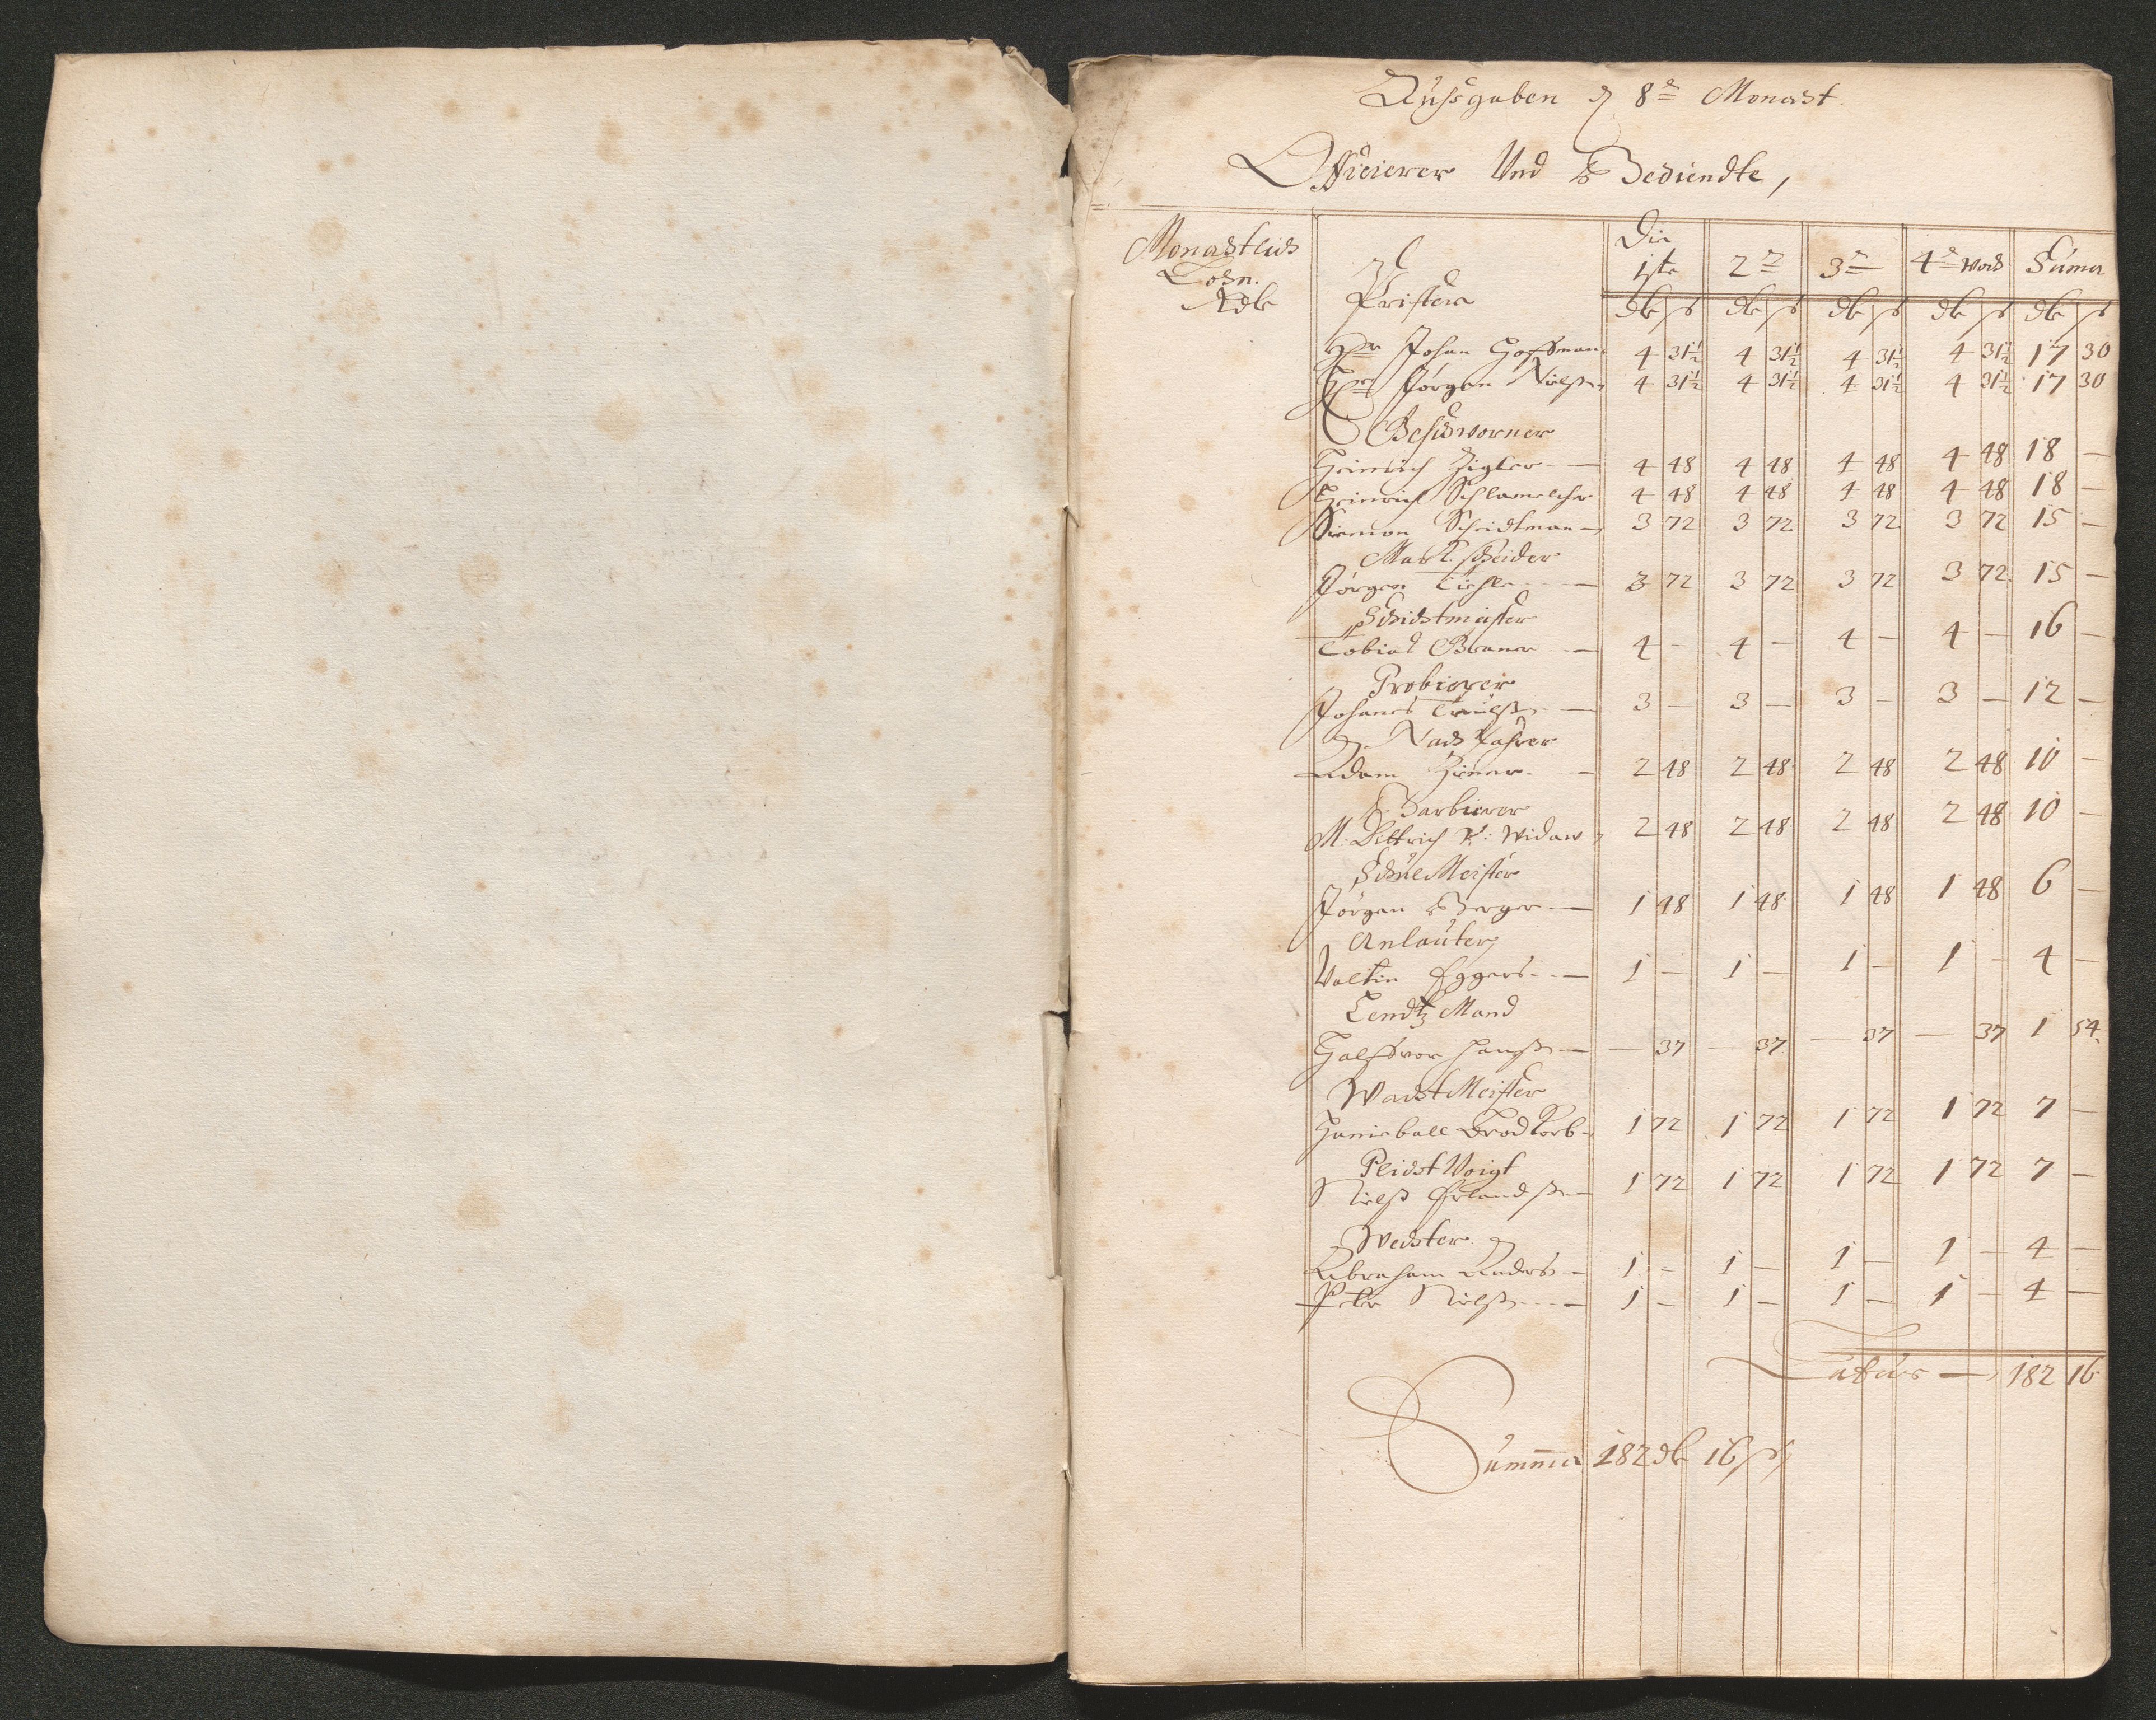 Ausgaben 8te Monadt.
Officierer Und Bediendte,
Monadtlich Die
Lohn. 1ste 2te 3te 4te woch Suma
Rdlr Prister dlr ß dlr ß dlr ß dlr ß dlr ß
Hr Johan Hoffman 4 31½ 4 31½ 4 31½ 4 31½ 17 30
Hr Jörgen Nielß 4 31½ 4 31½ 4 31½ 4 31½ 17 30
Geschworner
Heinrich Zigler — 4 48 4 48 4 48 4 48 18 —
Heinrich Schlamelcher 4 48 4 48 4 48 4 48 18 —
Siemon Scheidtman — 3 72 3 72 3 72 3 72 15 —
Mark scheider
Jörgen — 3 72 3 72 3 72 3 72 15 —
Schichtmeister
Tobias Braner — 4 — 4 — 4 — 4 — 16 —
Probierer
Johanes — 3 — 3 — 3 — 3 — 12 —
Nachfahrer
Adam — 2 48 2 48 2 48 2 48 10 —
Barbierer
M: Dittrich V: Widaw 2 48 2 48 2 48 2 48 10 —
SchuelMeister
Jörgen Berger — 1 48 1 48 1 48 1 48 6 —
Anlauter
Valtin Eggers — 1 — 1 — 1 — 1 — 4 —
Lendtz Mand
Halffvor Hanß — — 37 — 37 — 37 — 37 1 54
WachtMeister
Hanieball Brodkorb 1 72 1 72 1 72 1 72 7 —
Plicht Voigt
Nielß Erlandß — 1 72 1 72 1 72 1 72 7 —
Wechter
Abraham Anders — 1 — 1 — 1 — 1 — 4 —
Peter Nielß — 1 — 1 — 1 — 1 — 4 —
Latus — 182 16
Summa 182 dlr 16 ß